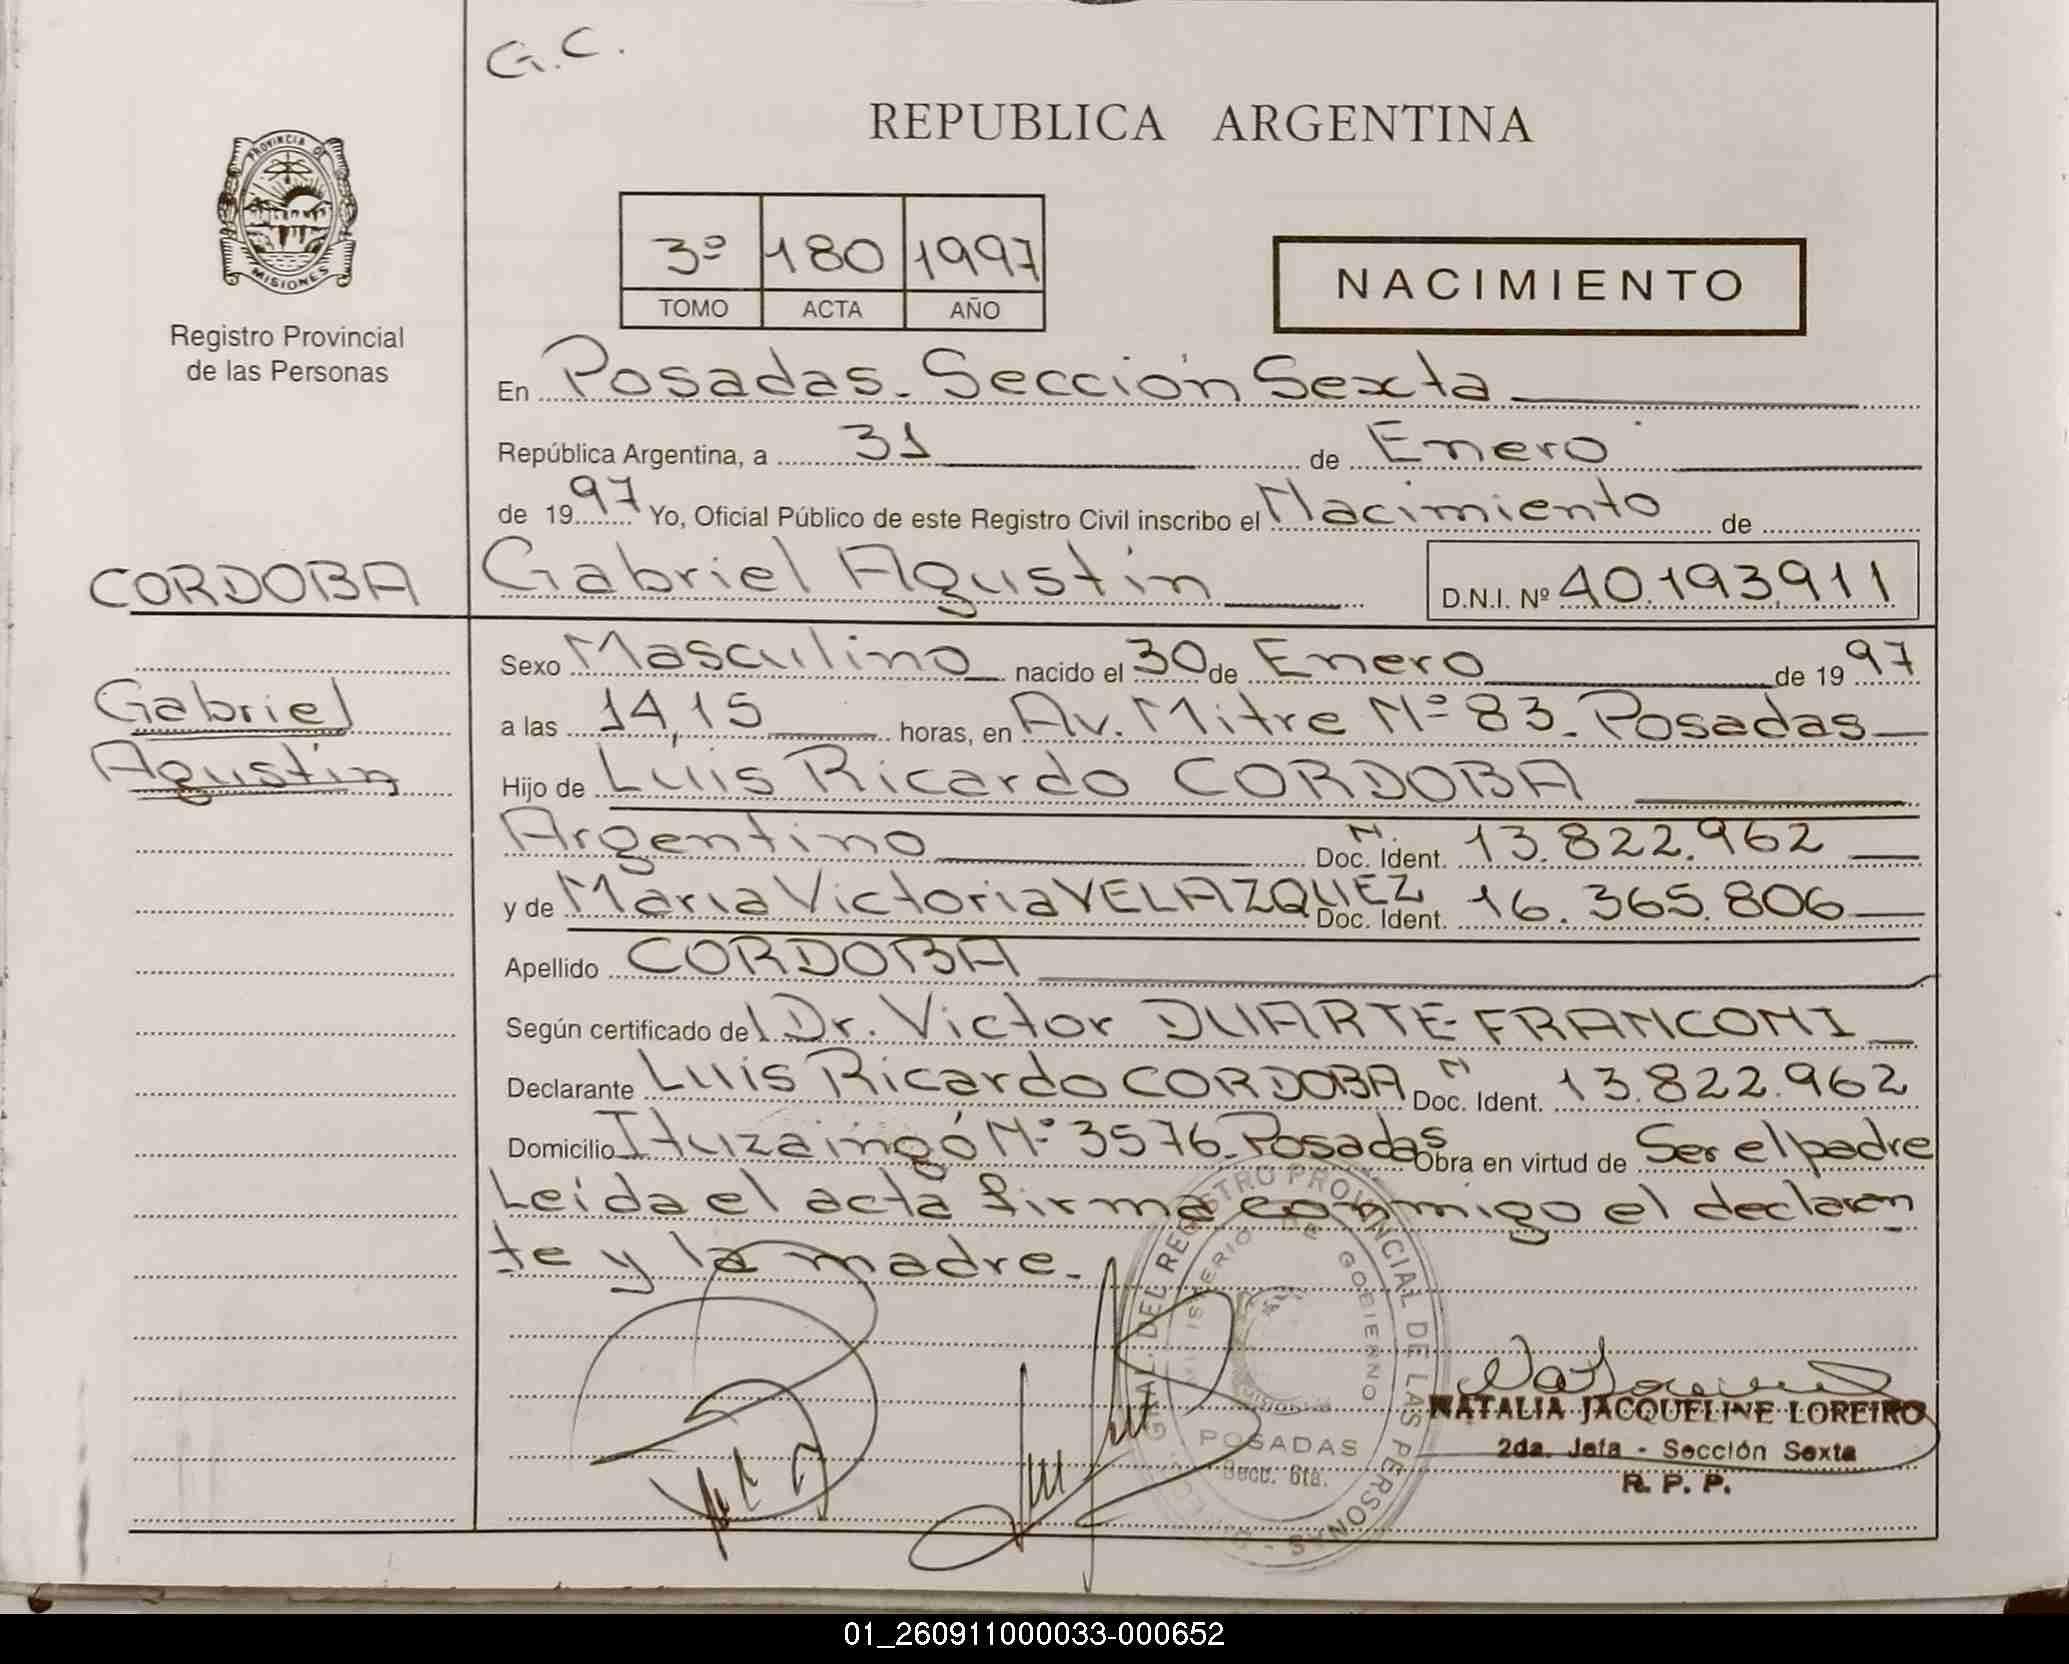 G.C.
REPUBLICA ARGENTINA
PROVINCIA DE
MISIONES
Registro Provincial
de las Personas
3º 180 1997
TOMO ACTA AÑO
NACIMIENTO
En Posadas. Sección Sexta
República Argentina, a 31 de Enero
de 1997 Yo, Oficial Público de este Registro Civil inscribo el Nacimiento de
CORDOBA Gabriel Agustín D.N.I. Nº 40.193.911
Sexo Masculino nacido el 30 de Enero de 1997
Gabriel
a las 14,15 horas, en Av. Mitre Nº 83. Posadas
Agustín
Hijo de Luis Ricardo CORDOBA
Argentino N. Doc. Ident. 13.822.962
y de María Victoria VELAZQUEZ Doc. Ident. 16.365.806
Apellido CORDOBA
Según certificado del Dr. Victor DUARTE-FRANCONI
Declarante Luis Ricardo CORDOBA N Doc. Ident. 13.822.962
Domicilio Ituzaingó Nº 3576. Posadas Obra en virtud de Ser el padre
Leída el acta firma conmigo el declaran
te y la madre.
GRAL. DEL REGISTRO PROVINCIAL DE LAS PERSONAS
MINISTERIO DE GOBIERNO
POSADAS
Secc. 6ta.
NATALIA JACQUELINE LOREIRO
2da. Jefa - Sección Sexta
R. P. P.
01_260911000033-000652